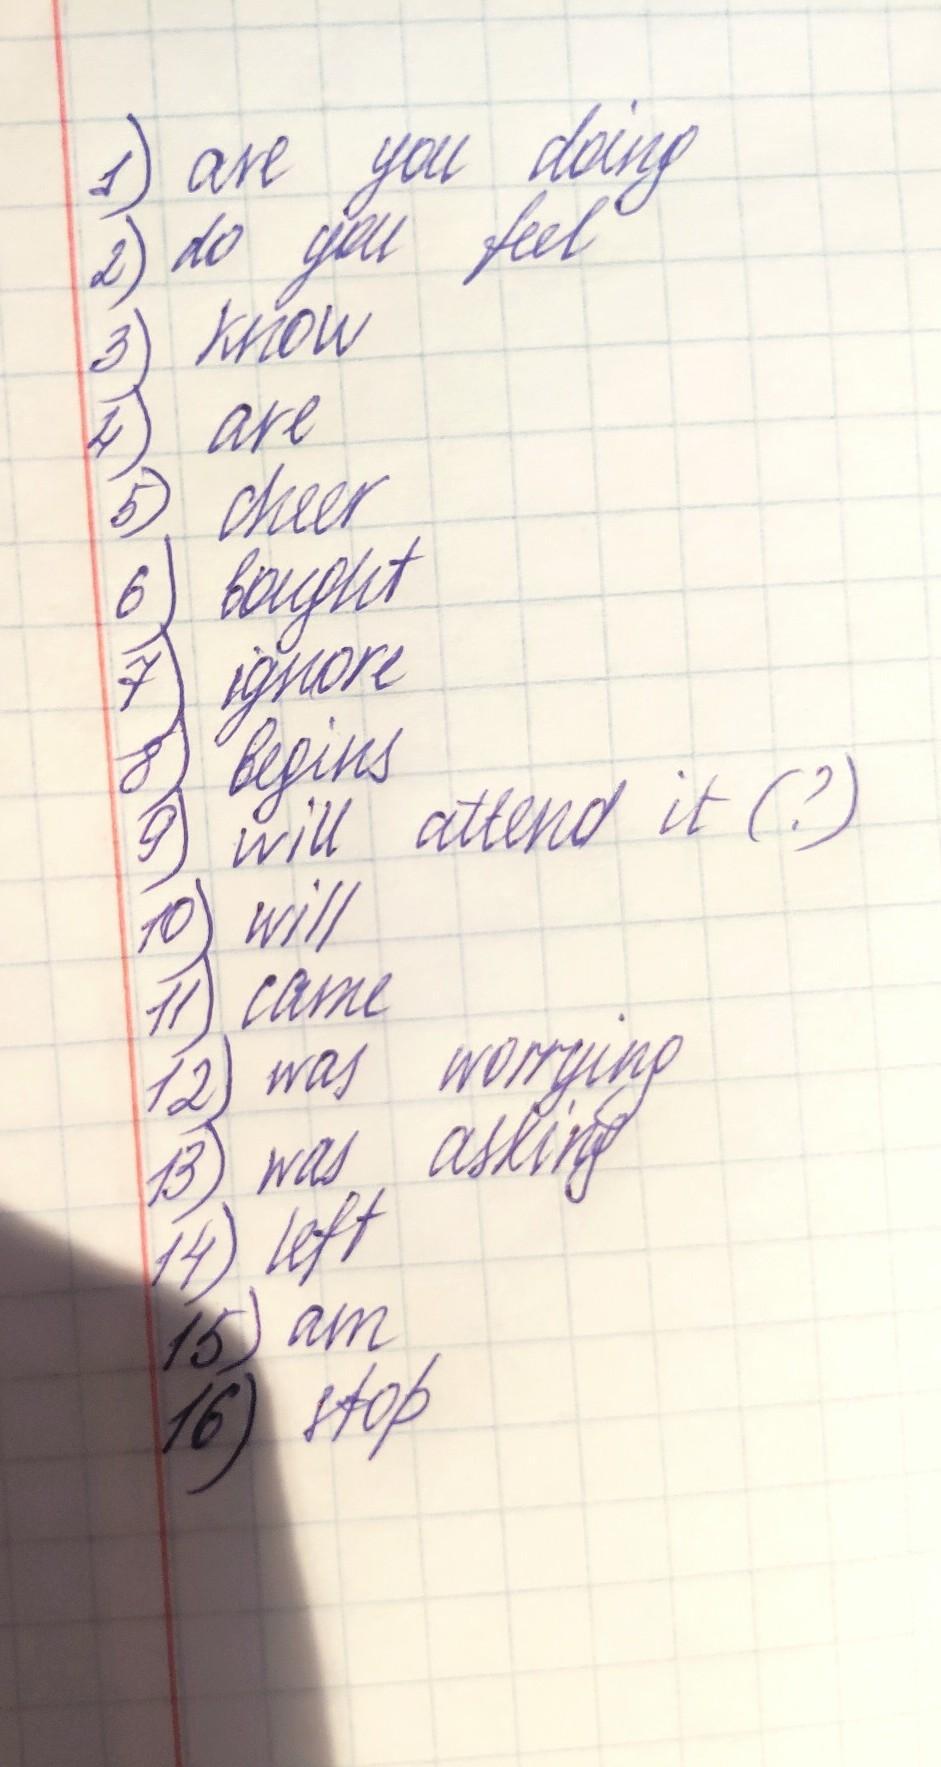 1) are you doing
2) do you feel
3) know
4) are
5) cheer
6) bought
7) ignore
8) begins
9) will attend it (?)
10) will
11) came
12) was worrying
13) was asking
14) left
15) am
16) stop